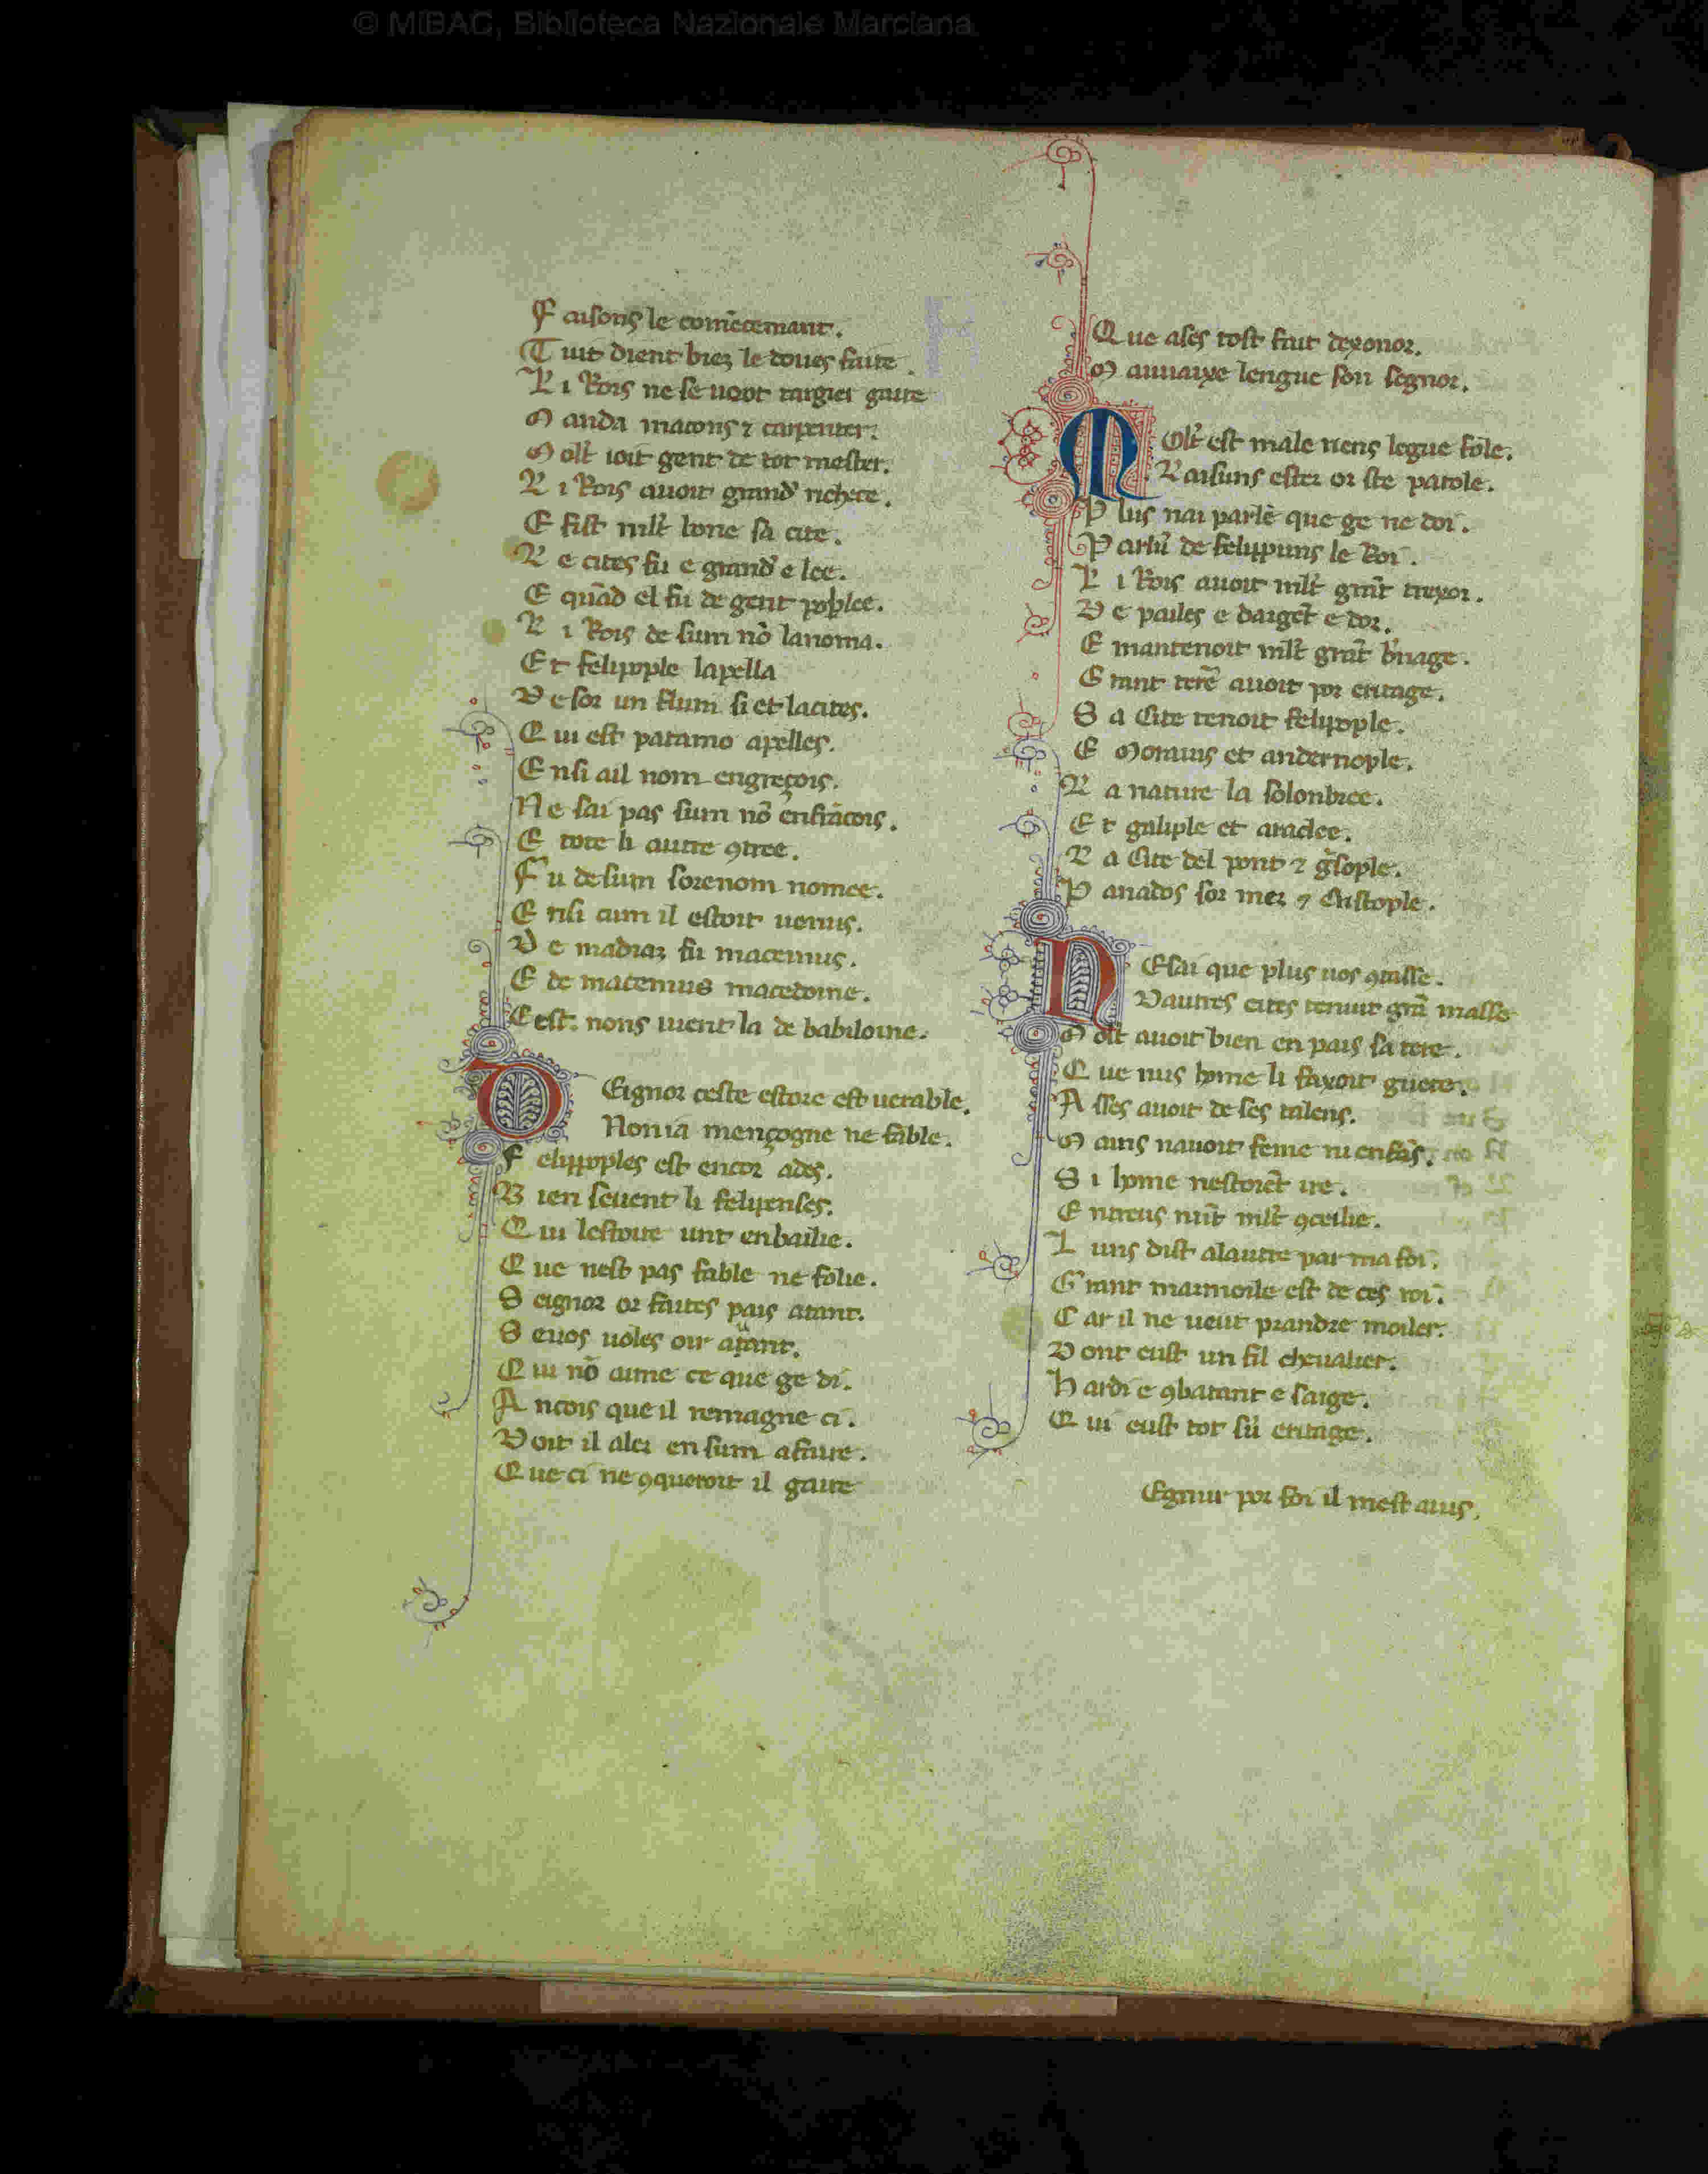 © MiBAC, Biblioteca Nazionale Marciana
F aisons le comēcemant.
T uit dient biez le doues faire.
L i Rois ne se uoot targier gaire
M anda macons ⁊ carpenter.
M olt ioit gent de tot mester.
L i Rois auoit grand richece.
E fist mlt bone sa cite.
L e cites fu e grand e lee.
E quād el fu de gent poplee.
L i Rois de sum nō lanoma.
Et felipople lapella
D esor un flum si et lacites.
Q ui est patamo apelles.
E nsi ail nom engreçois.
Ne sai pas sum nō enfrācois.
E tote li autre ꝯtree.
F u desum sorenom nomee.
E nsi cum il estoit uenus.
D e madiaz fu macemus.
E de macemus macedoine.
C est nons uient la de babiloine.
Eignor ceste estore est uerable.
Non ia mençogne ne fable.
F elippoples est encor ades.
B ien seuent li felipenses.
Q ui lestoire unt enbailie.
Q ue nest pas fable ne folie.
S eignor or faites pais atant.
S euos uoles oir auant.
Q ui nō aime ce que ge di.
A ncois que il remagne ci.
Doit il aler en sum afaire.
Q ue ci ne ꝯqueroit il gaire
Q ue ases tost fait dexonor.
M auuaixe lengue son segnor.
M Olt est male riens legue fole.
Laisuns ester or ste parole.
P lus nai parle que ge ne doi.
Parlū de felippuns le Roi.
L i Rois auoit mlt grāt trexor.
D e pailes e dargēt e dor.
E mantenoit mlt grāt bnage.
G rant terē auoit por eritage.
S a Cite tenoit felipople.
E Moruis et andernople.
L a nature la solonbree.
E t galiple et araclee.
L a Cite del pont ⁊ gsople.
P anados sor mer ⁊ Cristople.
N Esai que plus uos ꝯtasse.
Dautres cites tenoit grā masse
M olt auoit bien en pais sa tere.
Q ue nus home li faxoit guere.
A sses auoit de ses talens.
M ais nauoit feme ni enfās.
S i home nestoiēt ire.
E ntreus nūt mlt ꝯceilie.
L uns dist alautre par ma foi.
G rant marmoile est de ces roi.
C ar il ne ueut prandre moiler.
D ont eust un fil cheualier.
H ardi e ꝯbatant e saige.
Q ui eust tot sū eritage.
Egnur por foi il mest auis.